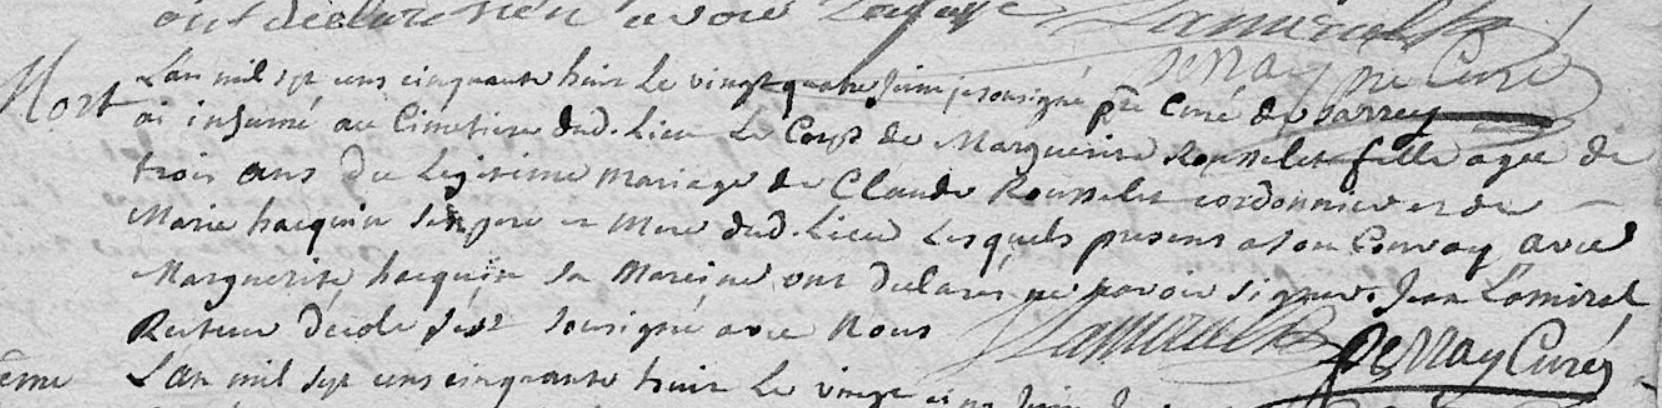 ont déclaré rien avoir Lamiralle
DeMay pre Curé
Mort L'an mil sept cens cinquante huit Le vingt quatre Juin je sousigné ptre Curé de Sarrey
ai inhumé au Cimetiere dud. Lieu Le Corps de Marguerite Rousselet fille agée de
trois ans du Legitime mariage de Claude Rousselet cordonnier et de
Marie hacquin ses pere et mere dud. Lieu Lesquels presens a son Convoy avec
Marguerite hacquin sa Mareine ont declarés ne savoir signer. Jean Lamiral
Recteur d'école s'est sousigné avec Nous Lamiralle DeMay Curé
L'an mil sept cens cinquante huit Le vingt cinq Juin